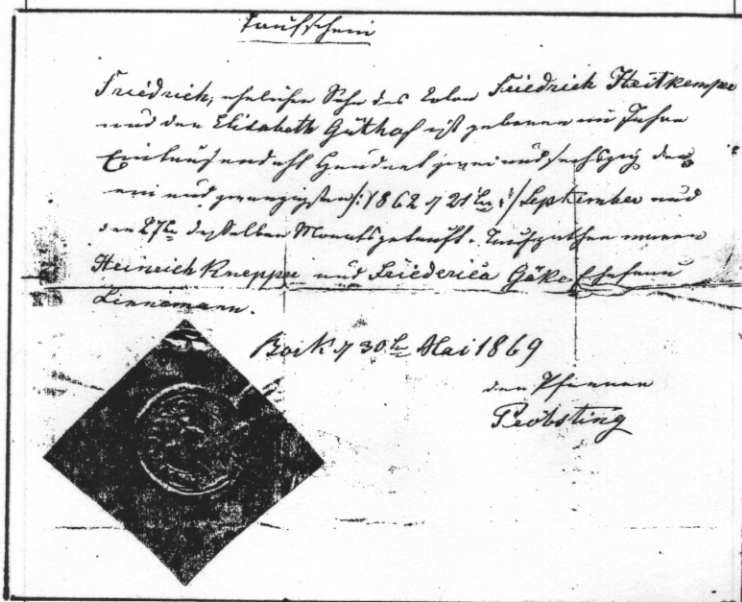 Taufschein
Friedrich, ehelicher Sohn des Colon Friedrich Heitkemper
und der Elisabeth Güthof ist geboren im Jahre
Eintausendacht Hundert zwei und sechszig den
ein und zwanzigsten /: 1862 d 21ten :/ September und
den 27ten desselben Monats getauft. Taufpathen waren
Heinrich Knepper und Friederica Göke Ehefrau
Linnemann.
Bork d 30ten Mai 1869
der Pfarrer
Pröbsting